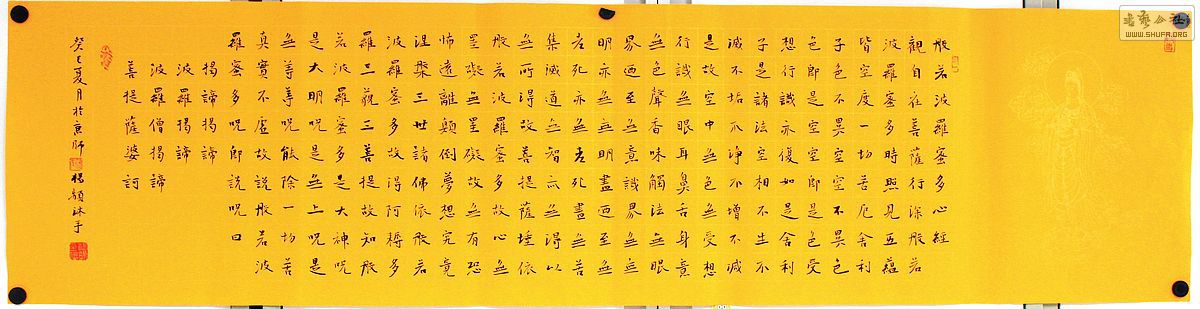 般若波羅蜜多心經
觀自在菩薩行深般若
波羅蜜多時照見五蘊
皆空度一切苦厄舍利
子色不異空空不異色
色即是空空即是色受
想行識亦復如是舍利
子是諸法空相不生不
滅不垢不淨不增不減
是故空中無色無受想
行識無眼耳鼻舌身意
無色聲香味觸法無眼
界迺至無意識界無無
明亦無無明盡迺至無
老死亦無老死盡無苦
集滅道無智亦無得以
無所得故菩提薩埵依
般若波羅蜜多故心無
罣礙無罣礙故無有恐
怖遠離顛倒夢想究竟
涅槃三世諸佛依般若
波羅蜜多故得阿耨多
羅三藐三菩提故知般
若波羅蜜多是大神呪
是大明呪是無上呪是
無等等呪能除一切苦
真實不虛故說般若波
羅蜜多呪即說呪曰
揭諦揭諦
波羅揭諦
波羅僧揭諦
菩提薩婆訶
癸巳夏月於京師
WWW.SHUFA.ORG